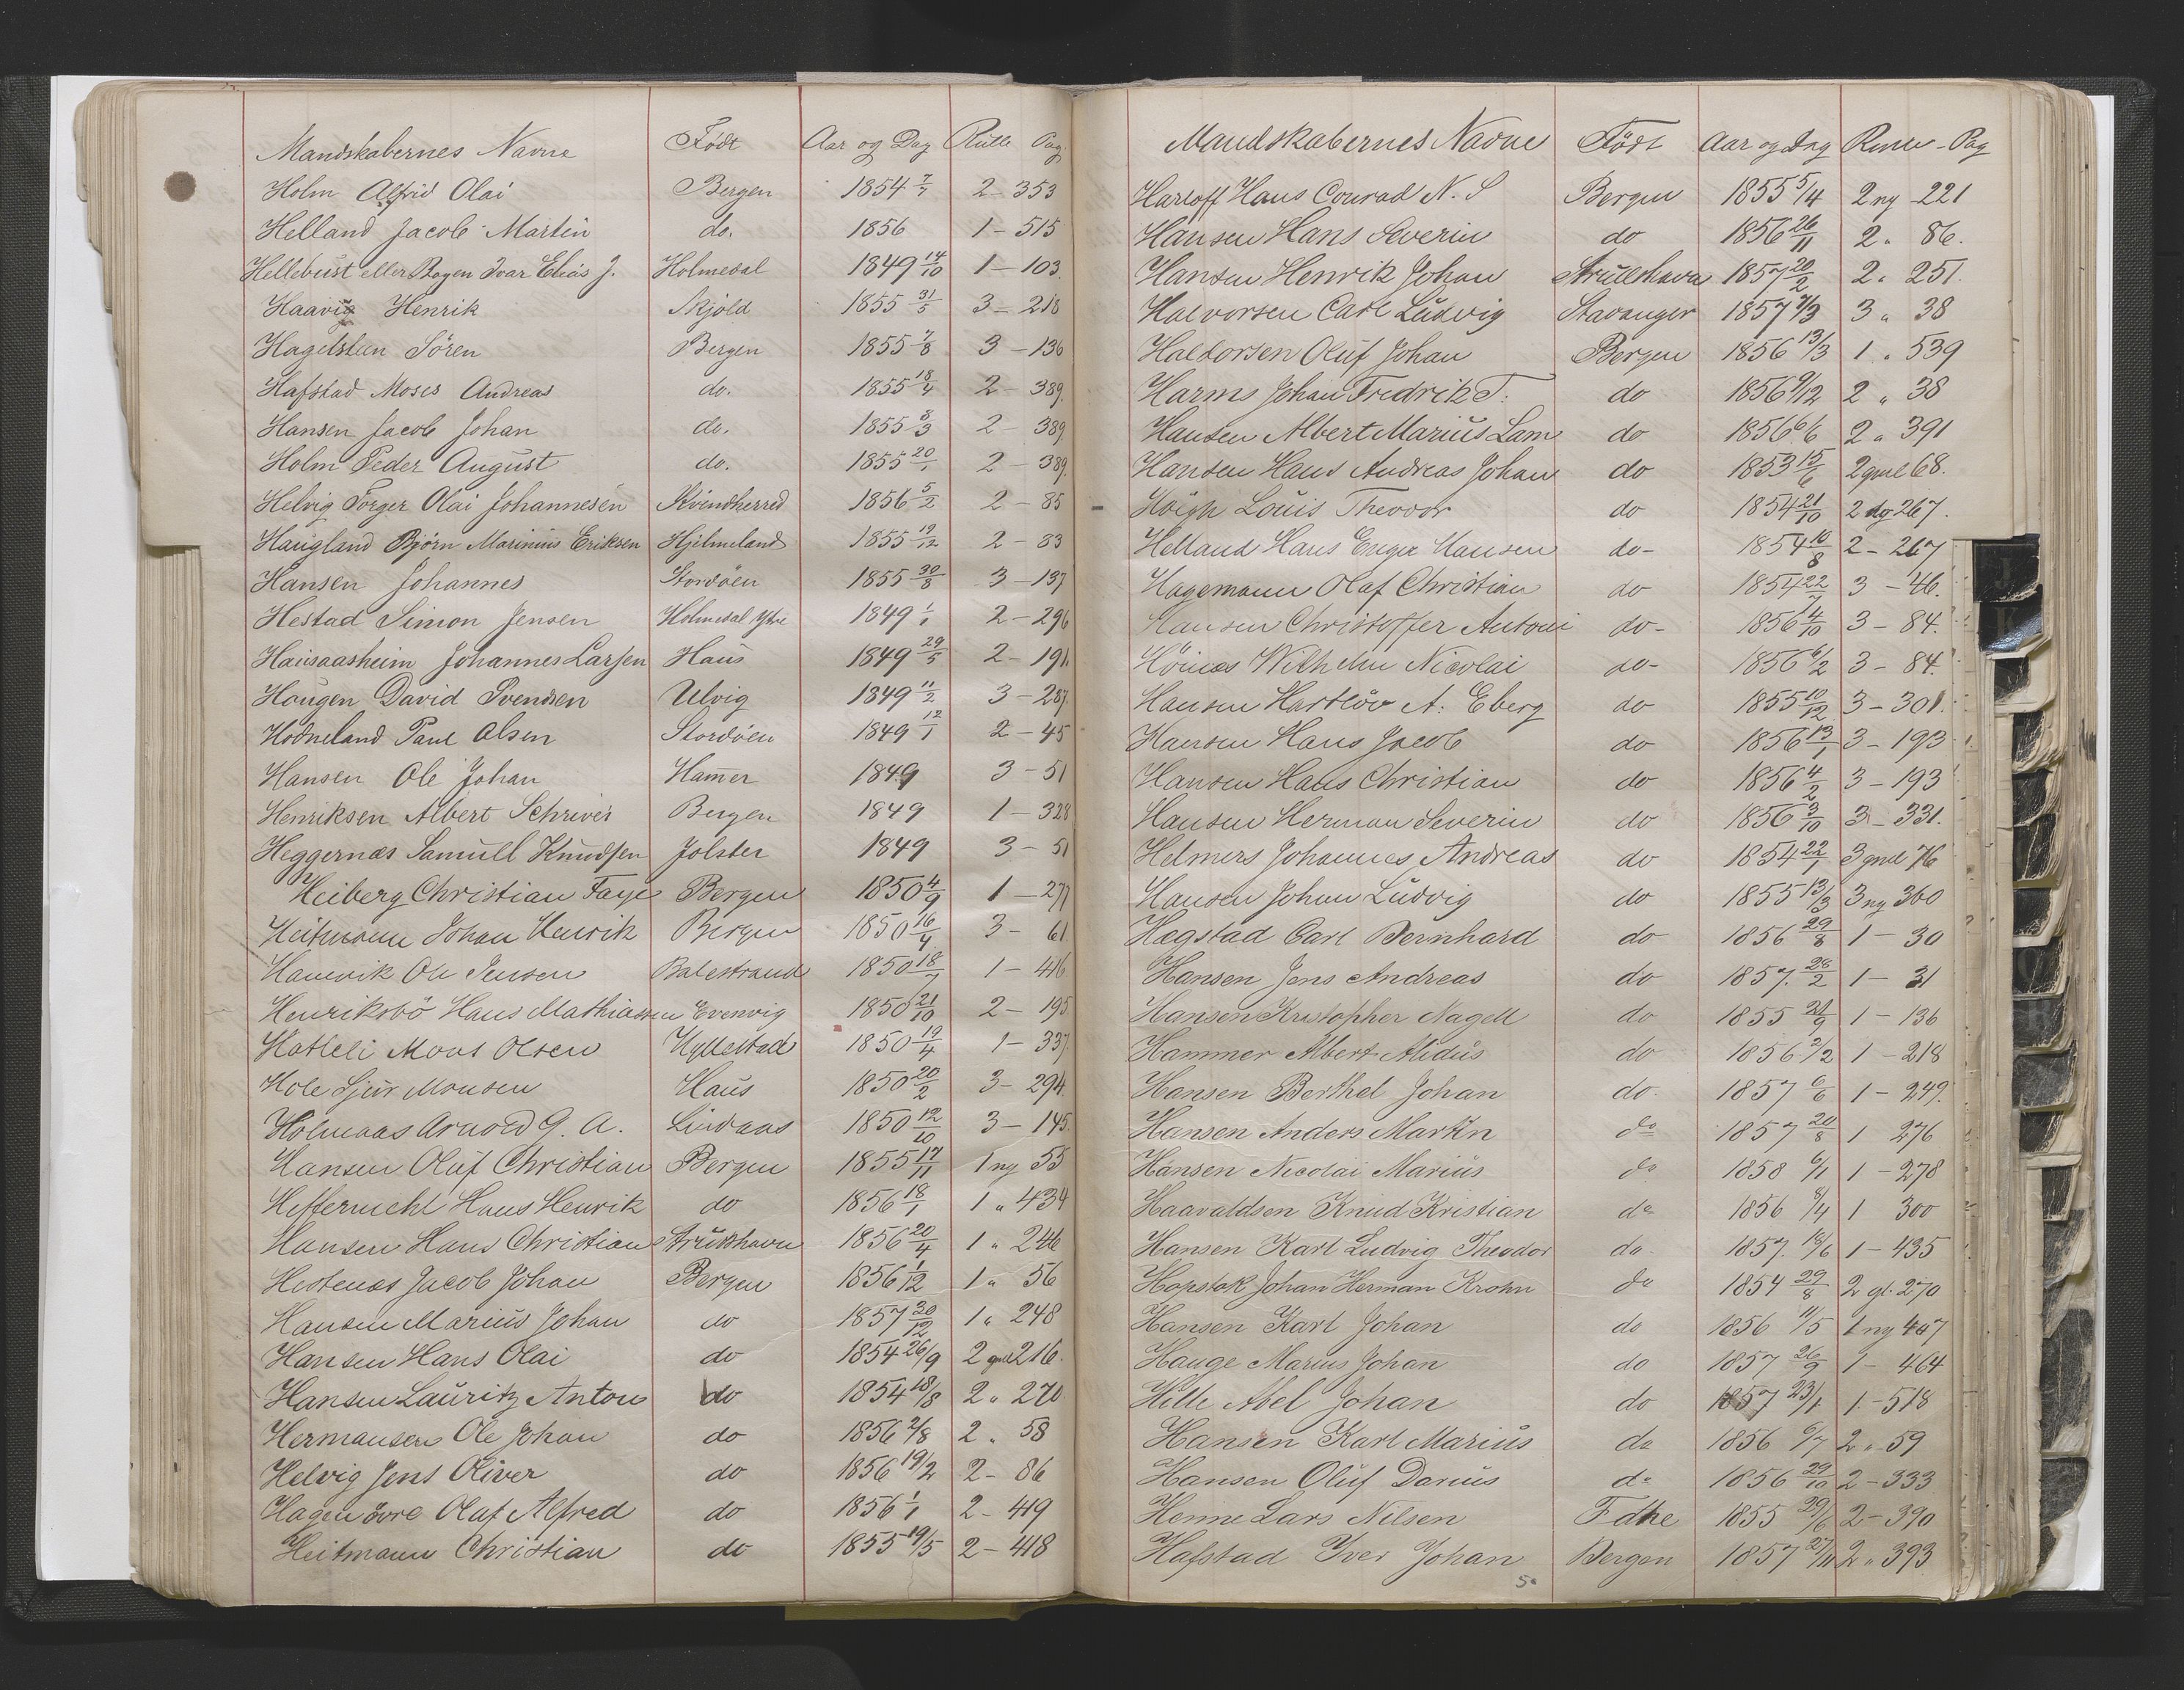 Mandskabernes Navne Født Aar og Dag Rulle Pag
Holm Alfrid Olai Bergen 1854 7/7 2-353
Helland Jacob Martin do. 1856 1-515
Hellebust eller Bogen Ivar Elias J. Holmedal 1849 14/10 1-103
Haavig Henrik Skjold 1855 31/5 3-218
Hagelsteen Sören Bergen 1855 7/8 3-136
Hafstad Moses Andreas do. 1855 18/4 2-389
Hansen Jacob Johan do. 1855 8/3 2-389
Holm Peder August do. 1855 20/1 2-389
Helvig Torger Olai Johannesen Kvindherred 1856 5/2 2-85
Haugland Bjørn Marinius Eriksen Hjelmeland 1855 19/12 2-83
Hansen Johannes Stordöen 1855 30/8 3-137
Hestad Simon Jensen Holmedal Ytre 1849 1/1 2-296
Hausaasheim Johannes Larsen Haus 1849 29/5 2-191
Haugen David Svendsen Ulvig 1849 11/2 3-287
Hodneland Paul Olsen Stordöen 1849 12/1 2-45
Hansen Ole Johan Hamer 1849 3-51
Henriksen Albert Schriver Bergen 1849 1-328
Heggernæs Samull Knudsen Jolster 1849 3-51
Heiberg Christian Faye Bergen 1850 4/9 1-277
Heitmann Johan Henrik Bergen 1850 16/4 3-61
Hamvik Ole Jensen Balestrand 1850 18/7 1-446
Henriksbö Hans Mathiassen Evenvig 1850 21/10 2-195
Hatleli Mons Olsen Hyllestad 1850 19/4 1-337
Hole Sjur Monsen Haus 1850 20/2 3-294
Holmaas Arnord G. A. Lindaas 1850 12/10 3-145
Hansen Oluf Christian Bergen 1855 17/11 1 ny 55
Heffermehl Hans Henrik do 1856 18/1 1 " 434
Hansen Hans Christian Strukhavn 1856 20/4 1 " 246
Hestenæs Jacob Johan Bergen 1856 1/12 1 " 56
Hansen Marius Johan do 1857 30/12 1 " 248
Hansen Hans Olai do 1854 26/9 2 gml 216
Hansen Lauritz Anton do 1854 18/8 2 " 270
Hermansen Ole Johan do 1856 2/8 2 " 58
Helvig Jens Oliver do 1856 19/2 2-86
Hagen Olaf Alfred do 1856 1/1 2-419
Heitmann Christian do 1855 19/5 2-418
Mandskabernes Navne Födt Aar og Dag Rulle-Pag
Harloff Hans Conrad N. S Bergen 1855 5/4 2 ny 221
Hansen Hans Severin do 1856 26/11 2 " 86.
Hansen Henrik Johan 1857 20/2 2 " 251.
Halvorsen Carl Ludvig Stavanger 1857 7/3 3 " 38
Haldorsen Oluf Johan Bergen 1856 13/3 1 " 539
Harms Johan Fredrik T. do 1856 9/12 2 " 38
Hansen Albert Marius Lam do 1856 6/6 2 " 391
Hansen Hans Andreas Johan do 1853 15/6 2 gml 68.
Höigh Louis Theodor do 1854 21/10 2 267.
Helland Hans Enger Hansen do- 1854 10/8 2-267
Hagemann Olaf Christian do 1854 22/7 3-46.
Hansen Christoffer Antoni do- 1856 4/10 3-84.
Höinæs Wilhelm Nicolai do- 1856 6/2 3-84.
Hansen Hartlöv A. Eberg do 1855 10/12 3-301.
Hansen Hans Jacob do 1856 13/1 3-193
Hansen Hans Christian do 1856 4/2 3-193
Hansen Herman Severin do 1856 3/10 3-331.
Helmers Johannes Andreas do 1854 22/1 3 gml 76
Hansen Johan Ludvig do 1855 13/3 3 ny 360
Hægstad Carl Bernhard do 1856 29/8 1-30
Hansen Jens Andreas do 1857. 28/2 1-31
Hansen Kristopher Nagell do 1855 21/9 1-136
Hammer Albert Alidus do 1856 2/2 1-218
Hansen Berthel Johan do. 1857 6/6 1-249.
Hansen Anders Martin do 1857 20/8 1 276
Hansen Nicolai Marius do 1858 6/1 1-278
Haavaldsen Knud Kristian do 1856 8/4 1 300
Hansen Karl Ludvig Theodor do. 1857. 18/6 1-435
Hopstok Johan Herman Krohn do 1854 29/8 2 gl. 270
Hansen Karl Johan do 1856 11/5 1 ny 407
Hauge Marius Johan do 1857 26/9 1-464
Hille Abel Johan do 1857 23/1 1-518
Hansen Karl Marius do 1856 6/7 2 " 59
Hansen Oluf Darius do 1856 29/10 2-333
Henne Lars Nilsen 1855 29/6 2-390
Hafstad Iver Johan Bergen 1857 27/11 2 " 393
J
K